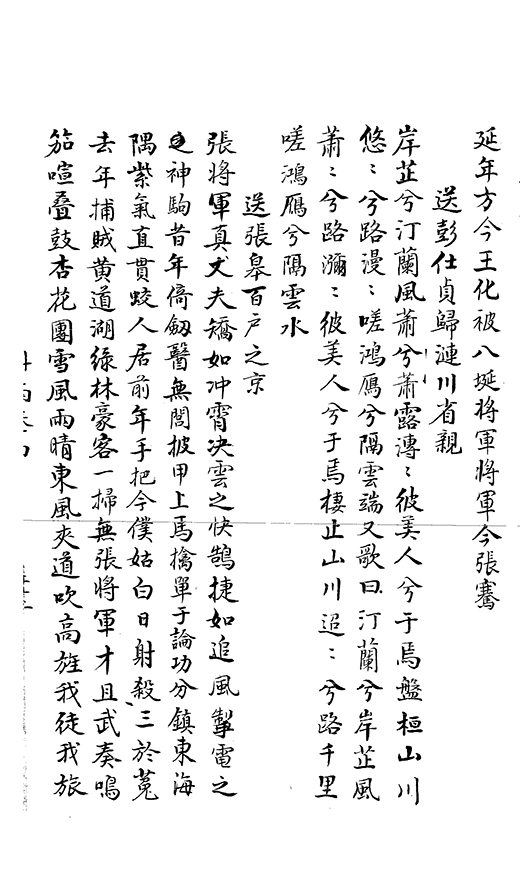 延年方今王化被八埏将軍将軍今張騫
送彭仕貞歸漣川省親
岸芷兮汀蘭風蕭兮蕭露漙〻彼美人兮于焉盤桓山川
悠〻兮路漫〻嗟鴻鴈兮隔雲端又歌曰汀蘭兮岸芷風
蕭〻兮路瀰〻彼美人兮于焉棲止山川迢〻兮路千里
嗟鴻鴈兮隔雲水
送張皋百户之京
張將軍真丈夫矯如冲霄决雲之快鶻捷如追風掣電之
神駒昔年倚劒醫無閭披甲上馬擒單于論功分鎮東海
隅紫氣直貫蛟人居前年手把今僕姑白日射殺三於菟
去年捕賊黄道湖綠林豪客一掃無張將軍才且武奏鳴
笳喧疊鼓杏花團雪風雨晴東風夾道吹高旌我徒我旅